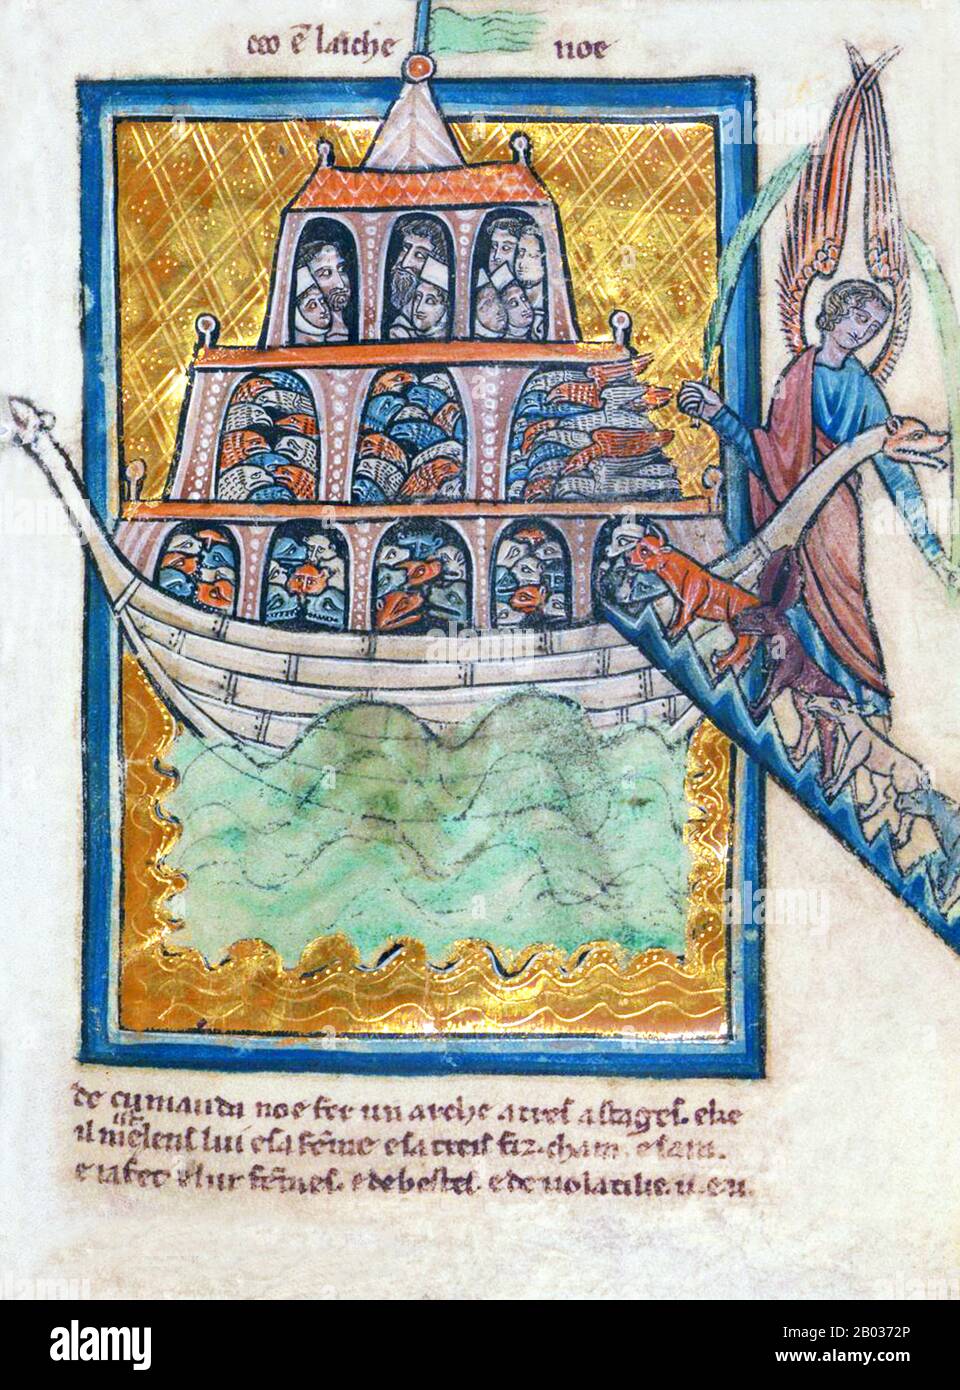 ceo ē laiche noe
de cumandu noe fer un arche a treis astages. e ke
il mēlens lui e sa fēme e sa treis fiz. cham. e sam.
e iafet e lur fēmes. e de bestes. e de volatilie. u. e u.
alamy
Image ID: 2B0372P
www.alamy.com